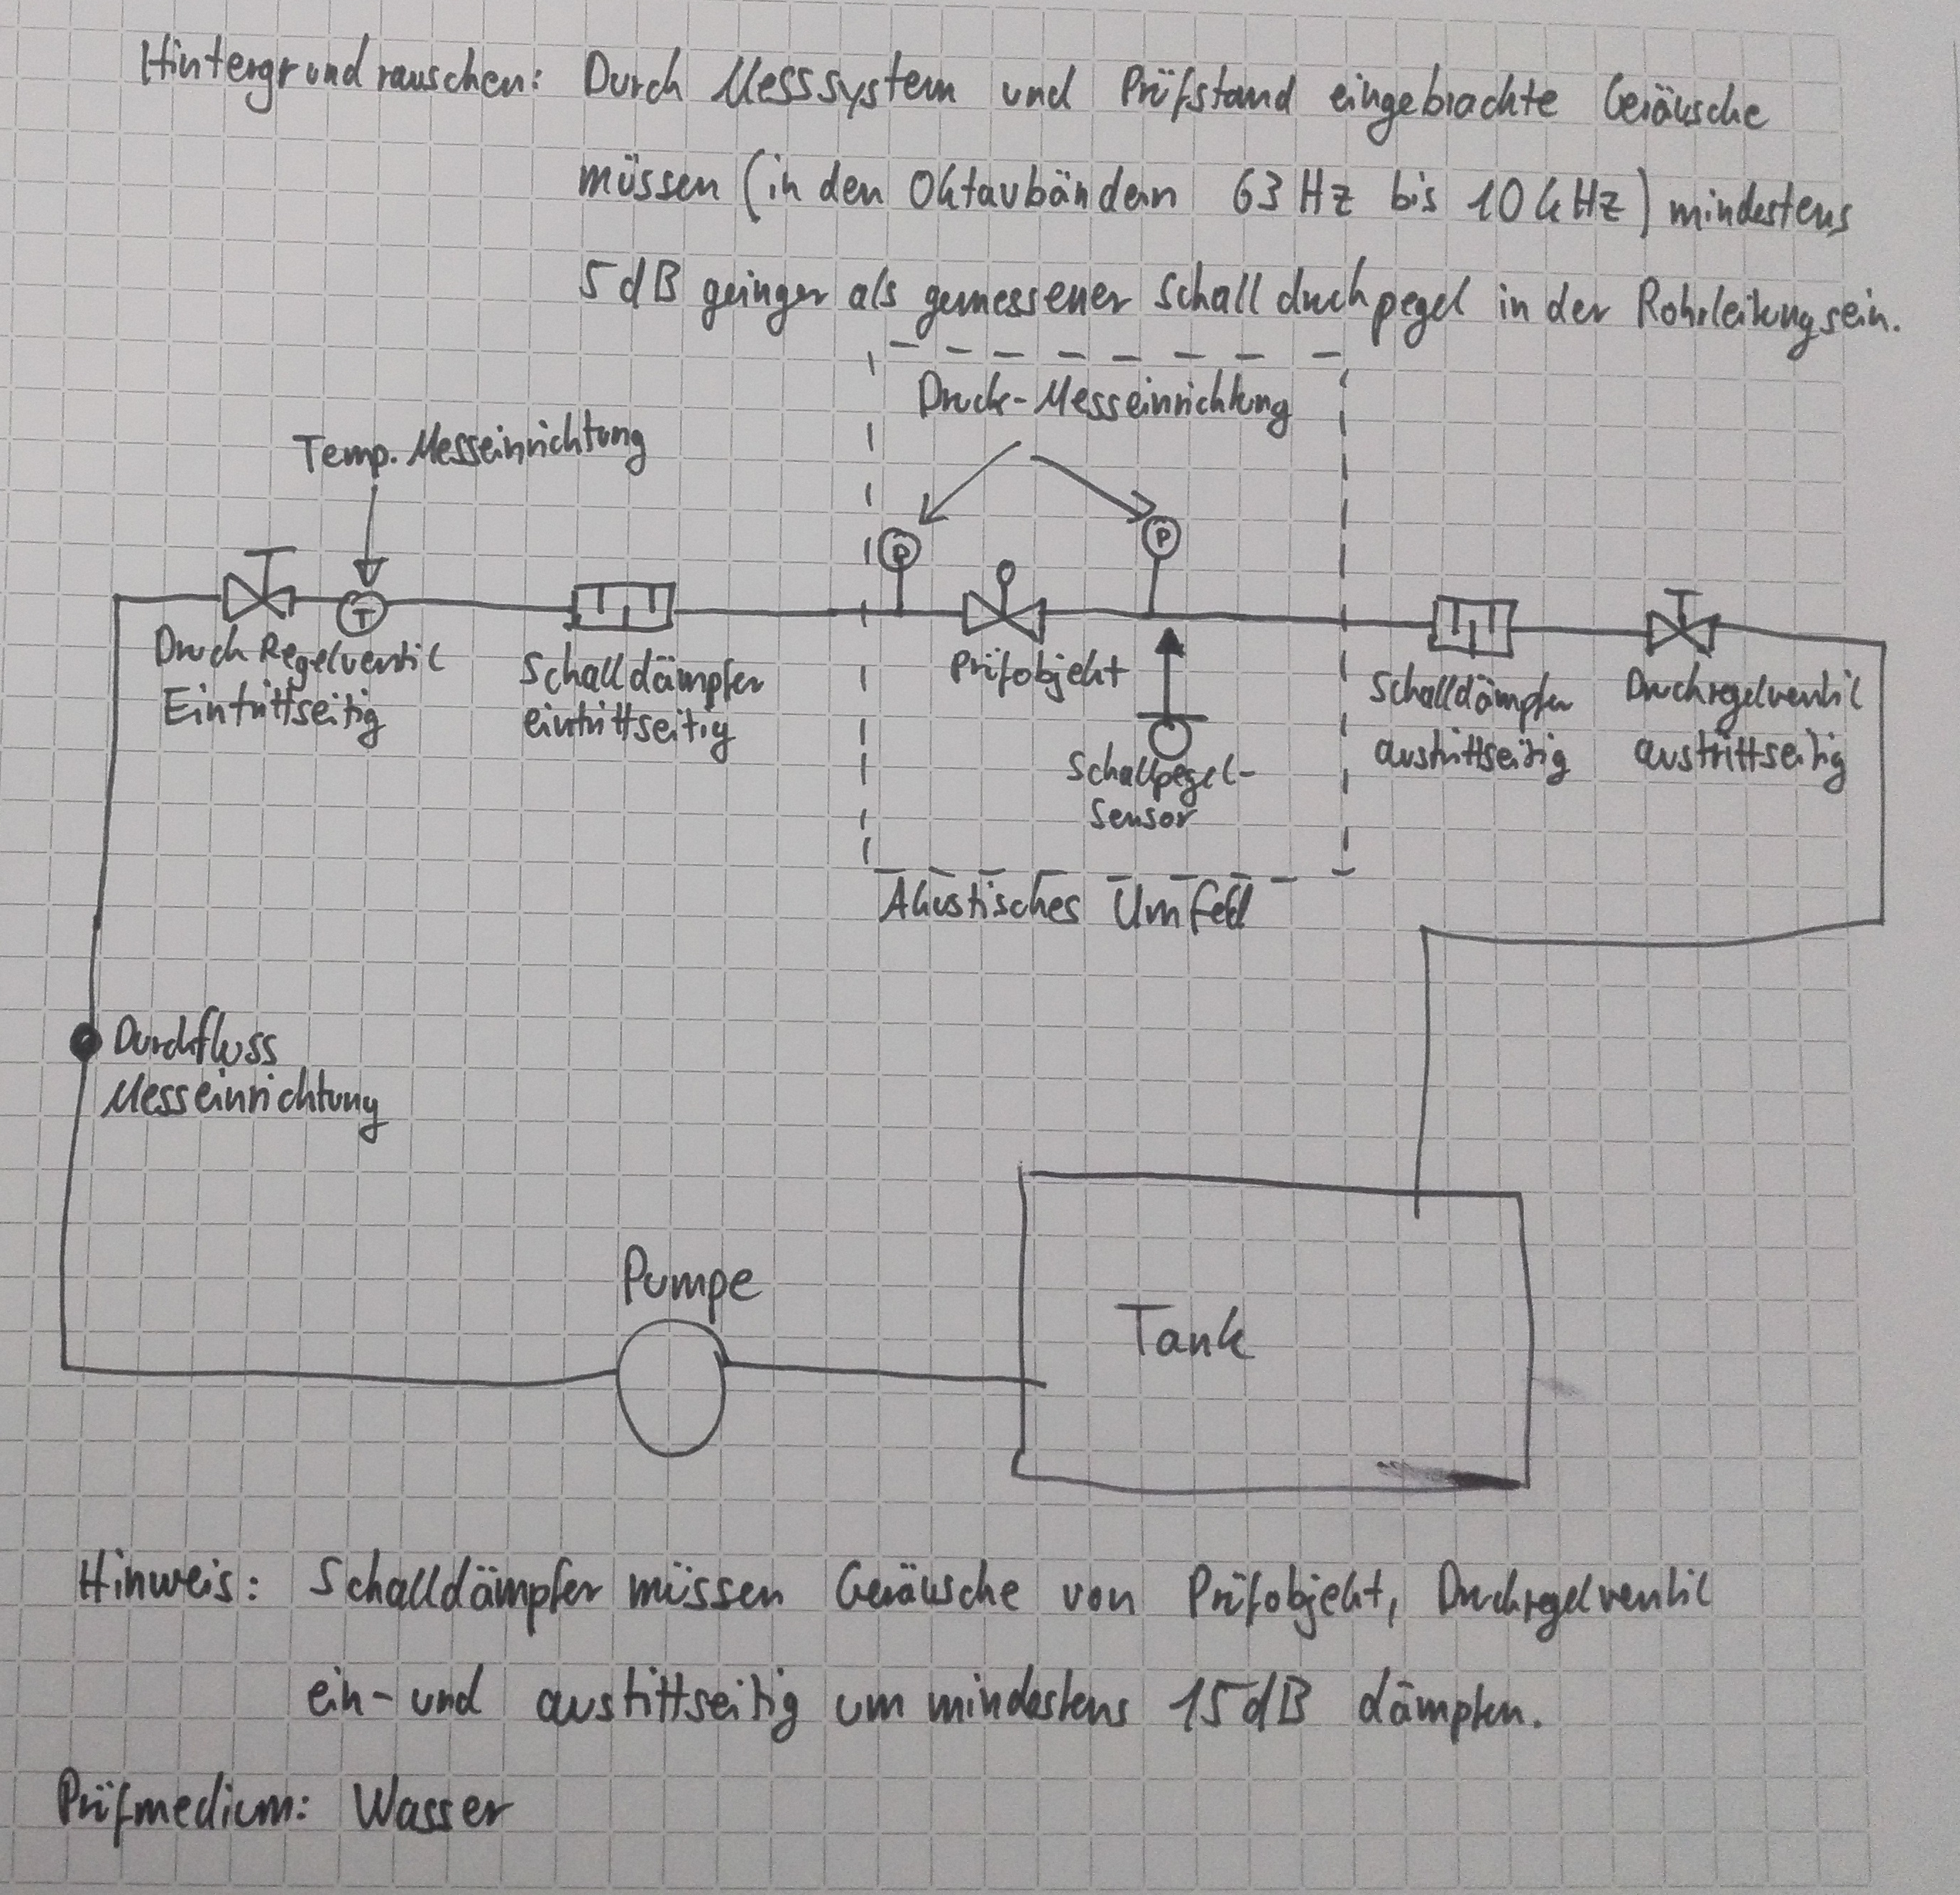 Hintergrundrauschen: Durch Messsystem und Prüfstand eingebrachte Geräusche
müssen (in den Oktavbändern 63 Hz bis 10 kHz) mindestens
5 dB geringer als gemessener Schalldruckpegel in der Rohrleitung sein.
Druck-Messeinrichtung
Temp. Messeinrichtung
P
P
T
Druck Regelventil
Eintrittseitig
Schalldämpfer
eintrittseitig
Prüfobjekt
Schallpegel-
Sensor
Schalldämpfer
austrittseitig
Druckregelventil
austrittseitig
Akustisches Umfeld
Durchfluss
Messeinrichtung
Pumpe
Tank
Hinweis: Schalldämpfer müssen Geräusche von Prüfobjekt, Druckregelventil
ein- und austittseitig um mindestens 15 dB dämpfen.
Prüfmedium: Wasser